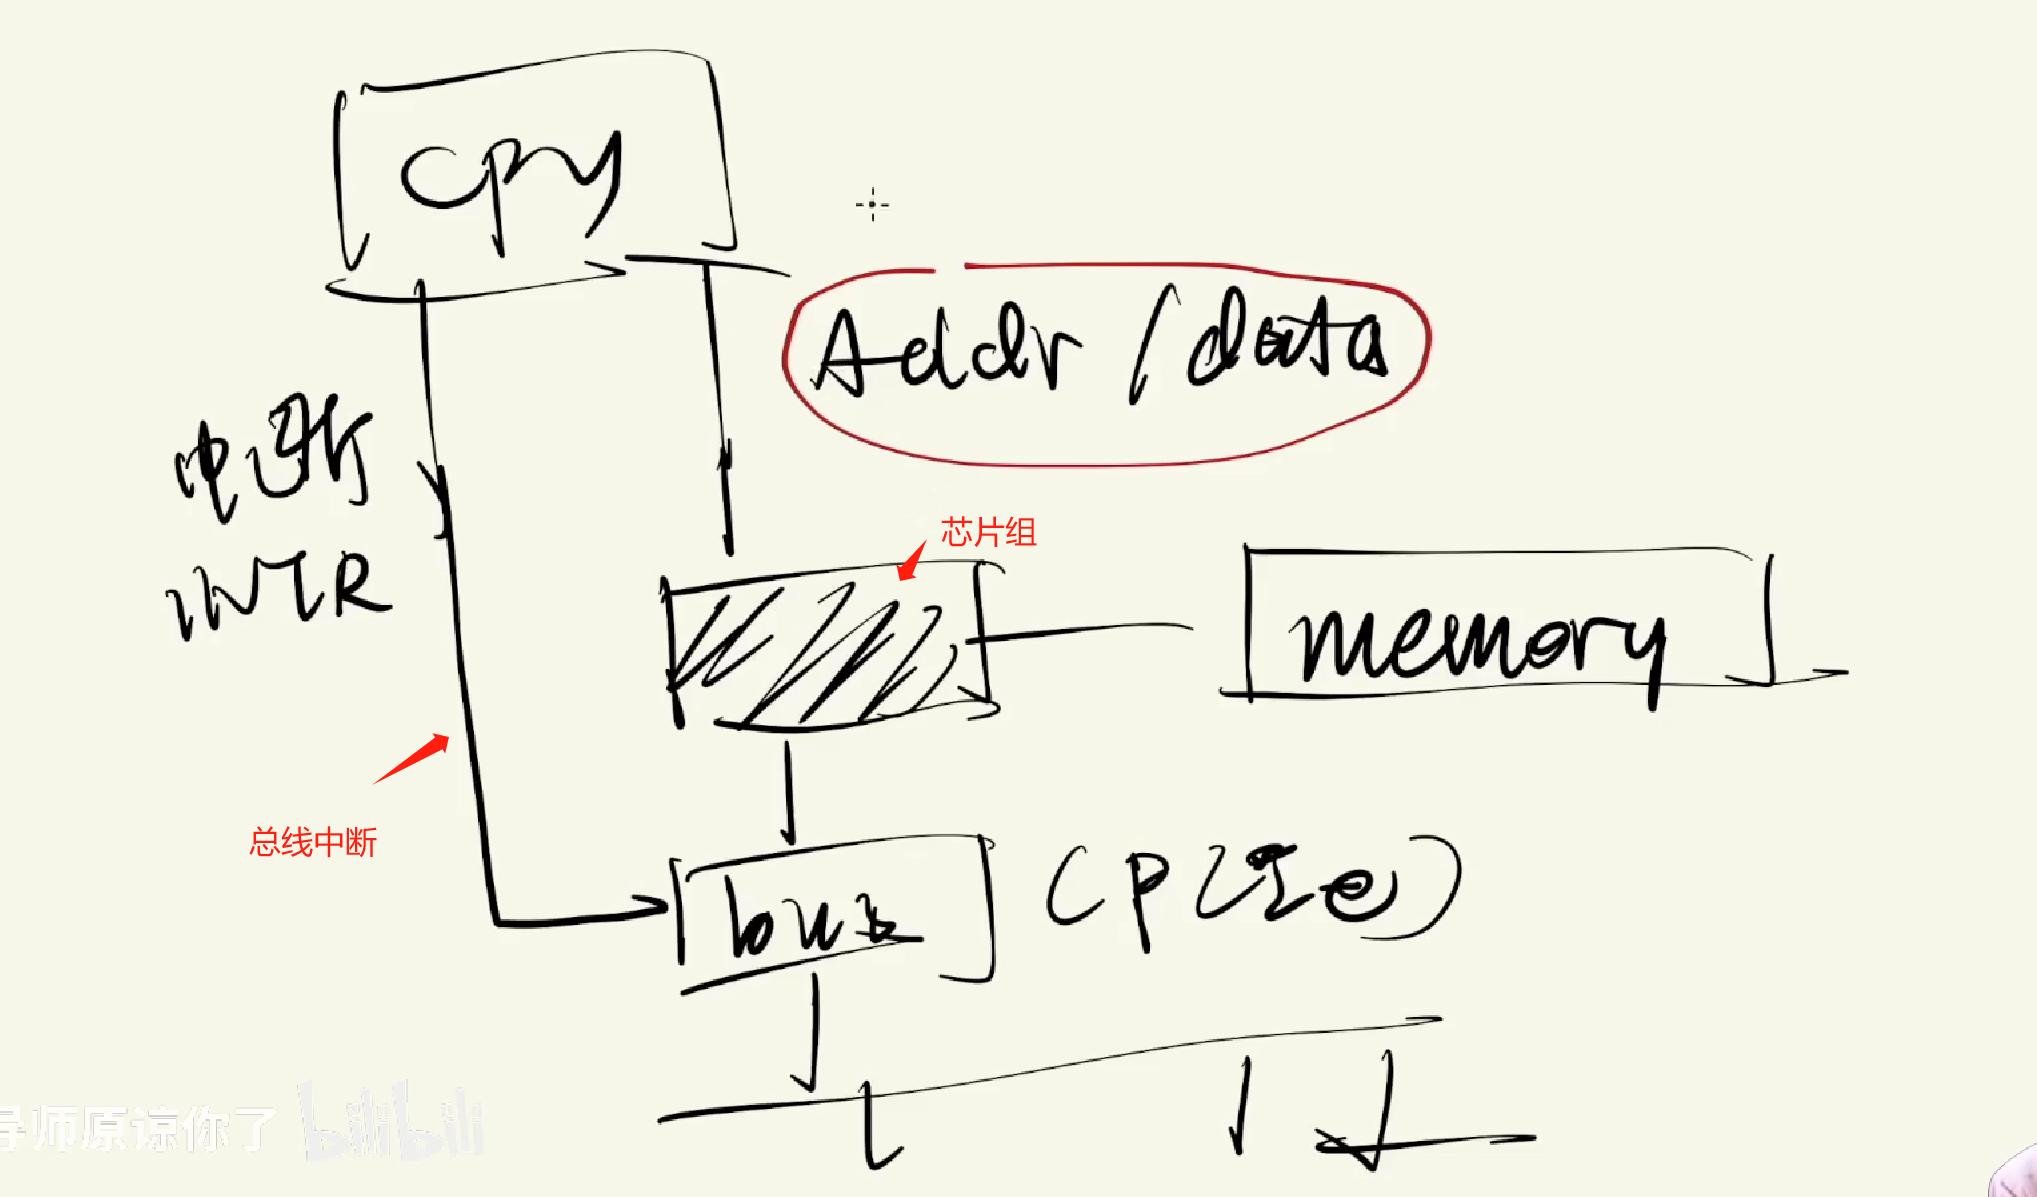 cpu
Addr / data
中断
INTR
芯片组
memory
总线中断
bus
(PCIe)
导师原谅你了 bilibili